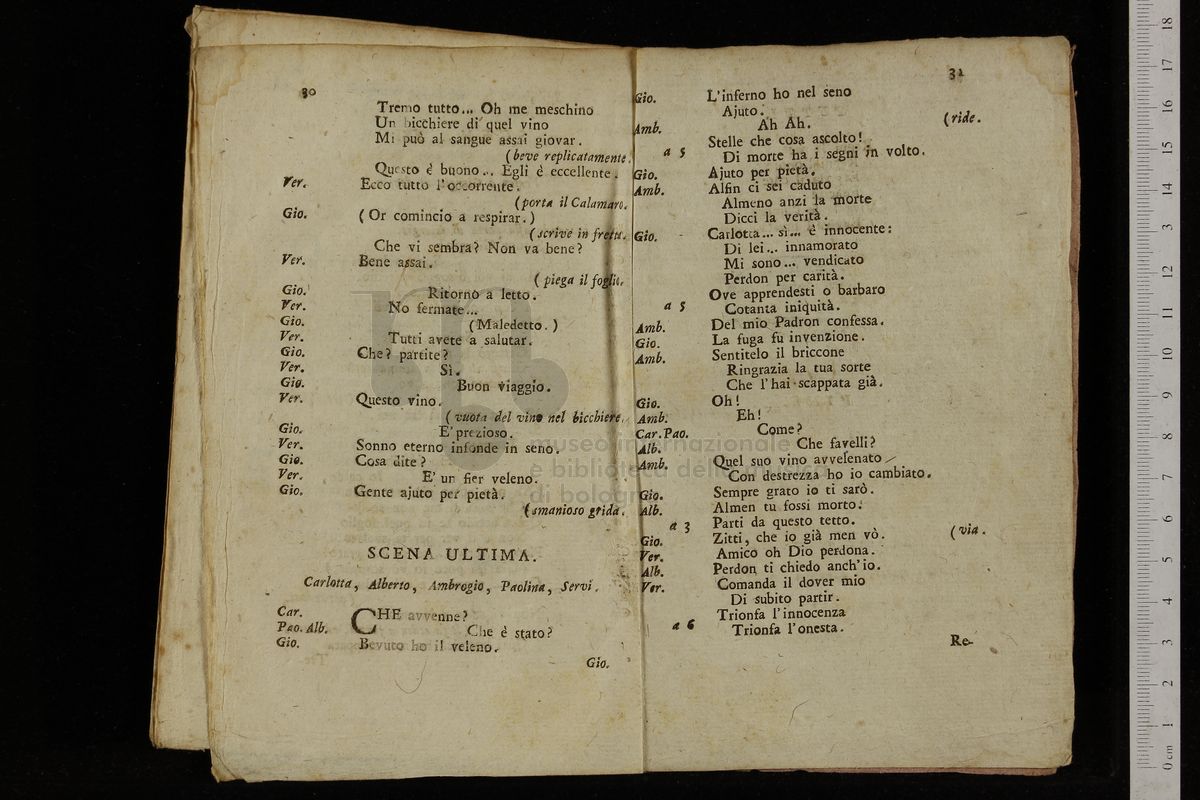 30
Tremo tutto... Oh me meschino
Un bicchiere di quel vino
Mi può al sangue assai giovar.
(beve replicatamente.
Questo è buono... Egli è eccellente.
Ver. Ecco tutto l'occorrente.
(porta il Calamaro.
Gio. (Or comincio a respirar.)
(scrive in fretta.
Che vi sembra? Non va bene?
Ver. Bene assai.
(piega il foglio.
Gio. Ritorno a letto.
Ver. No fermate...
Gio. (Maledetto.)
Ver. Tutti avete a salutar.
Gio. Che? partite?
Ver. Sì.
Gio. Buon viaggio.
Ver. Questo vino.
(vuota del vino nel bicchiere.
Gio. E' prezioso.
Ver. Sonno eterno infonde in seno.
Gio. Cosa dite?
Ver. E' un fier veleno.
Gio. Gente ajuto per pietà.
(smanioso grida.
SCENA ULTIMA.
Carlotta, Alberto, Ambrogio, Paolina, Servi.
Car. CHE avvenne?
Pao. Alb. Che è stato?
Gio. Bevuto ho il veleno.
Gio.
31
Gio. L'inferno ho nel seno
Ajuto.
Amb. Ah Ah. (ride.
a 5 Stelle che cosa ascolto!
Di morte ha i segni in volto.
Gio. Ajuto per pietà.
Amb. Alfin ci sei caduto
Almeno anzi la morte
Dicci la verità.
Gio. Carlotta... sì... è innocente:
Di lei... innamorato
Mi sono... vendicato
Perdon per carità.
a 5 Ove apprendesti o barbaro
Cotanta iniquità.
Amb. Del mio Padron confessa.
Gio. La fuga fu invenzione.
Amb. Sentitelo il briccone
Ringrazia la tua sorte
Che l'hai scappata già.
Gio. Oh!
Amb. Eh!
Car. Pao. Come?
Alb. Che favelli?
Amb. Quel suo vino avvelenato
Con destrezza ho io cambiato.
Gio. Sempre grato io ti sarò.
Alb. Almen tu fossi morto.
a 3 Parti da questo tetto.
Gio. Zitti, che io già men vò. (via.
Ver. Amico oh Dio perdona.
Alb. Perdon ti chiedo anch'io.
Ver. Comanda il dover mio
Di subito partir.
a 6 Trionfa l'innocenza
Trionfa l'onestà.
Re-
museo internazionale
e biblioteca della musica
di bologna
0 cm 1 2 3 4 5 6 7 8 9 10 11 12 13 14 15 16 17 18